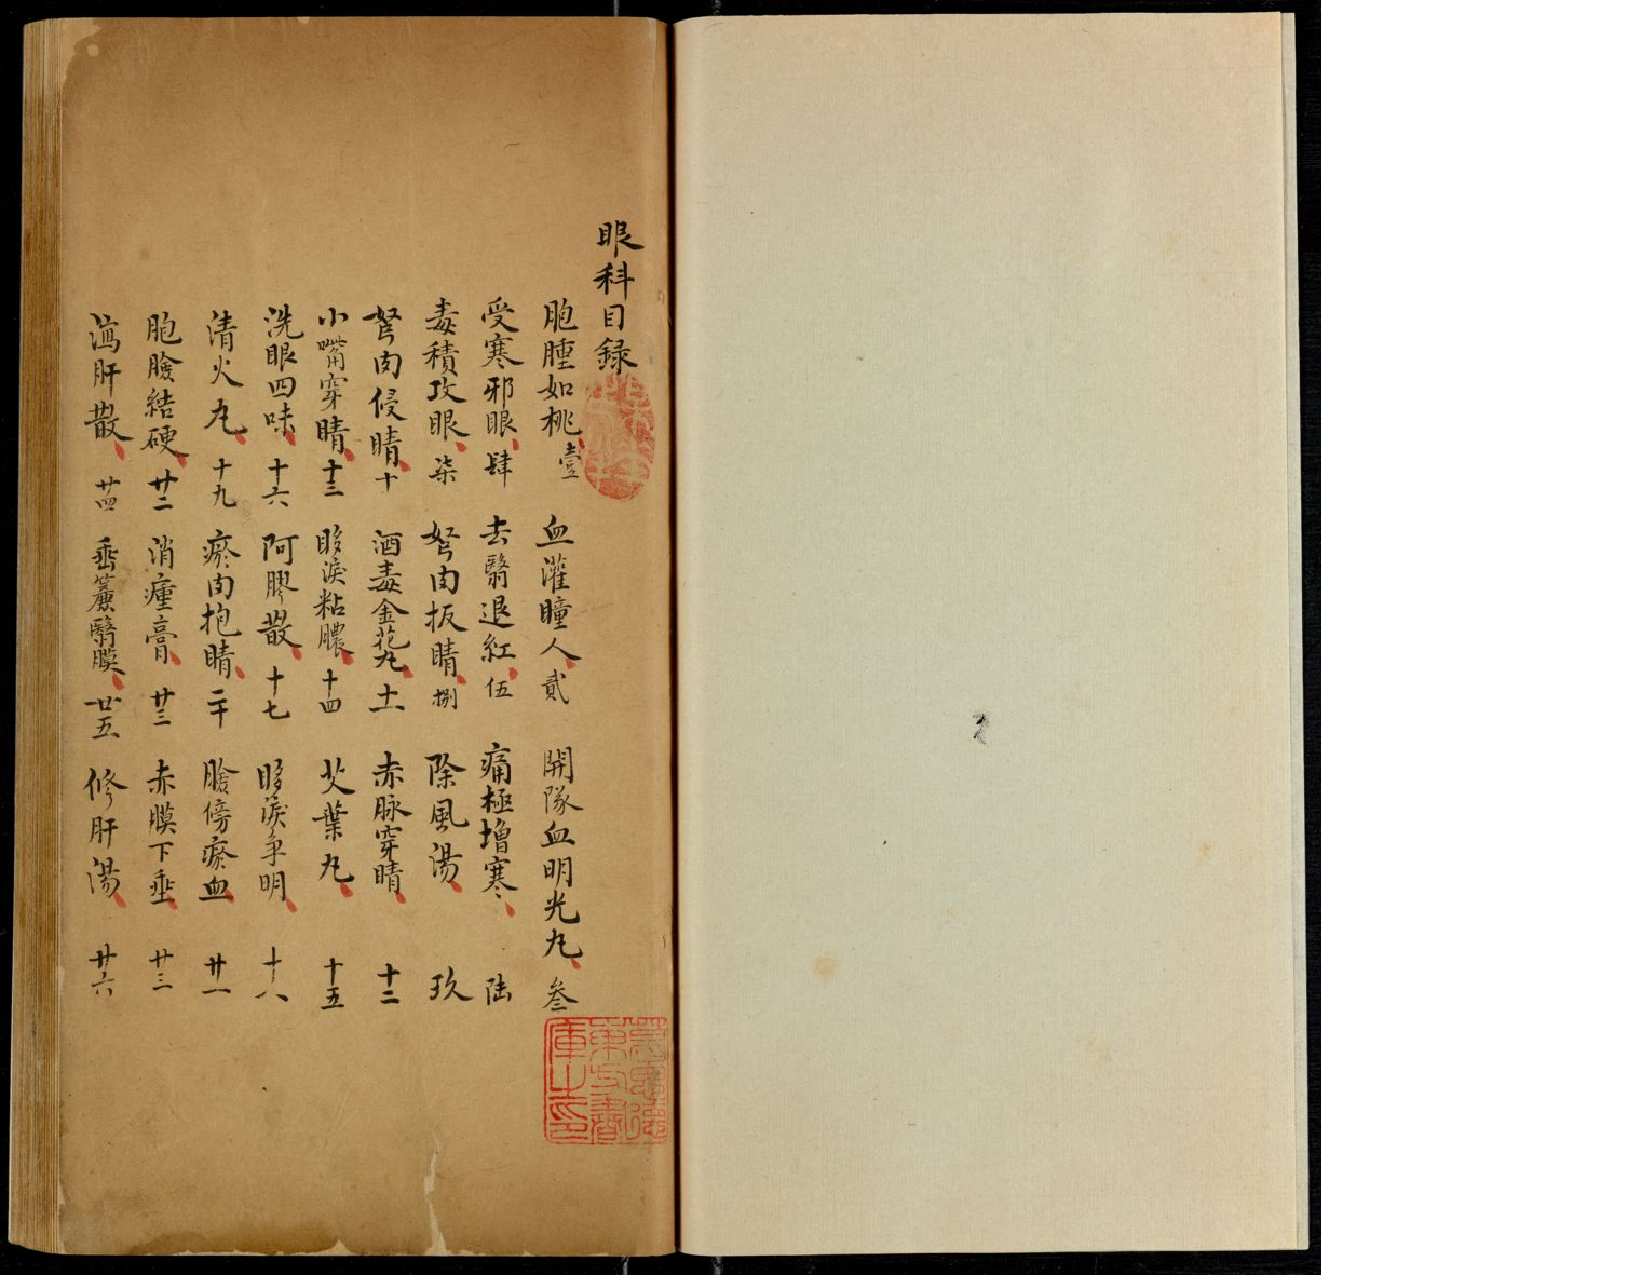 眼科目録
胞腫如桃 壹 血灌瞳人 貳 開隊血明光丸 叁
受寒邪眼 肆 去翳退紅 伍 痛極增寒 陆
毒積攻眼 柒 努肉扳睛 捌 除風湯 玖
努肉侵睛 十 酒毒金花丸 十一 赤脉穿睛 十二
小嘴穿睛 十三 眵淚粘膿 十四 艾葉丸 十五
洗眼四味 十六 阿膠散 十七 眵淚争明 十八
清火丸 十九 瘀肉抱睛 二十 臉傍瘀血 廿一
胞臉結硬 廿二 消瘇膏 廿三 赤膜下垂 廿三
瀉肝散 廿四 垂簾翳膜 廿五 修肝湯 廿六